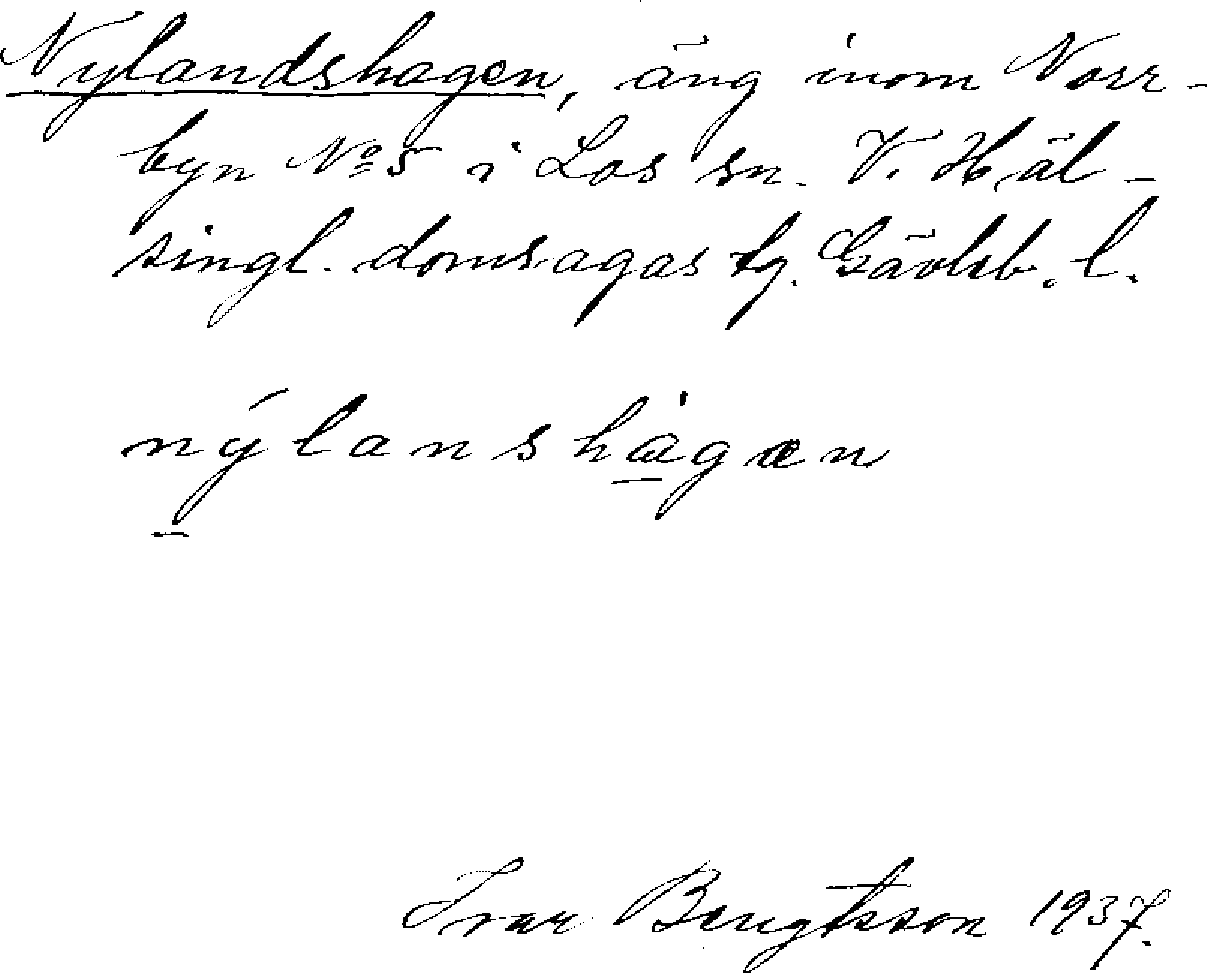 Nylandshagen, äng inom Norr-
byn Nº 5 i Los sn. V. Häl-
singl. domsagas tg. Gävleb. l.
nýlanshàgæn
Ivar Bengtsson 1937.